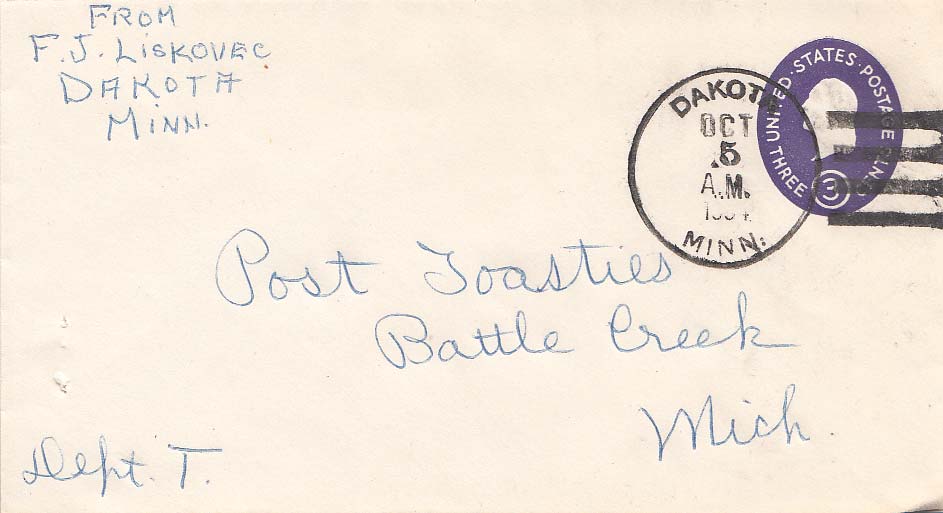 FROM
F.J. LISKOVEC
DAKOTA
MINN.
UNITED · STATES · POSTAGE
THREE
3
DAKOTA
OCT
5
A.M.
MINN.
Post Toasties
Battle Creek
Mich.
Dept. T.